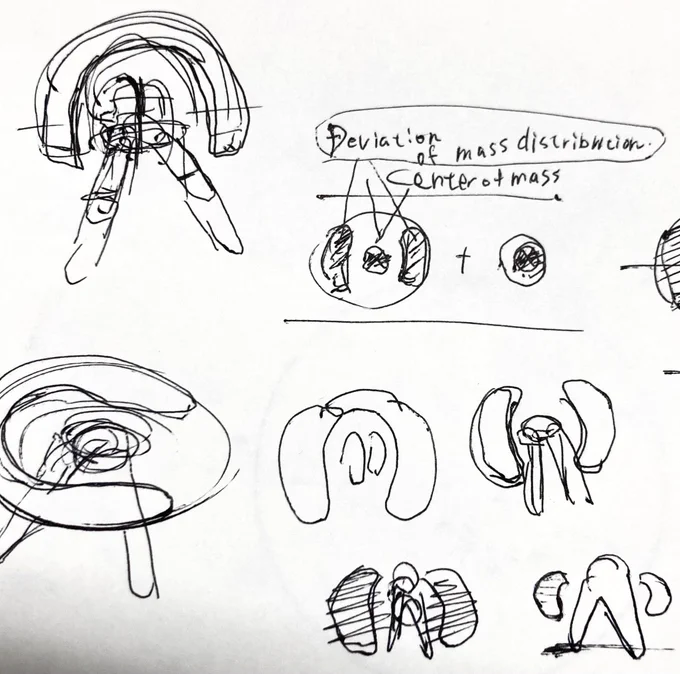 Deviation
of mass distribution.
Center of mass